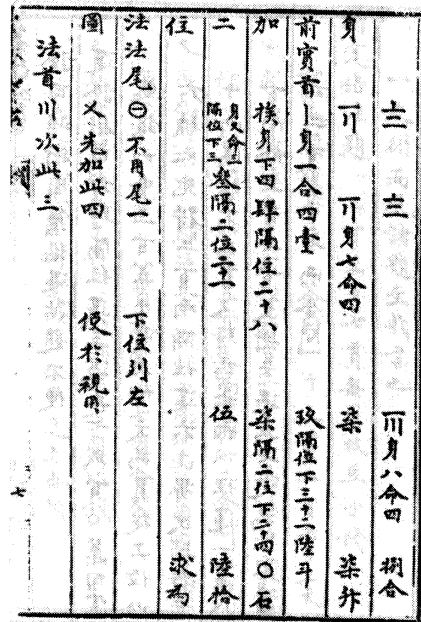 亠三 亠三 〣身八命四 捌合
身 〢 〢身七命四 柒 柒升
前實首〡身一合四壹 隔位下三十二陸斗
加 挨身下四肆隔位二十八 柒隔二位下二十四〇石
二 身又命三隔位下三 叄隔二位二十一 伍 陸拾
位 求為
法法尾㊀不用尾一 下位列左
圖 〤先加此四 使於視用
法首〣次此三
七